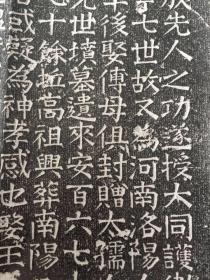 放先人之功遂授大同護
七世故又為河南洛陽
年後娶傅母俱封贈太孺
見世墳墓遺來安百六七
七十餘丘高祖興葬南陽
咸疑為神孝感也娶王